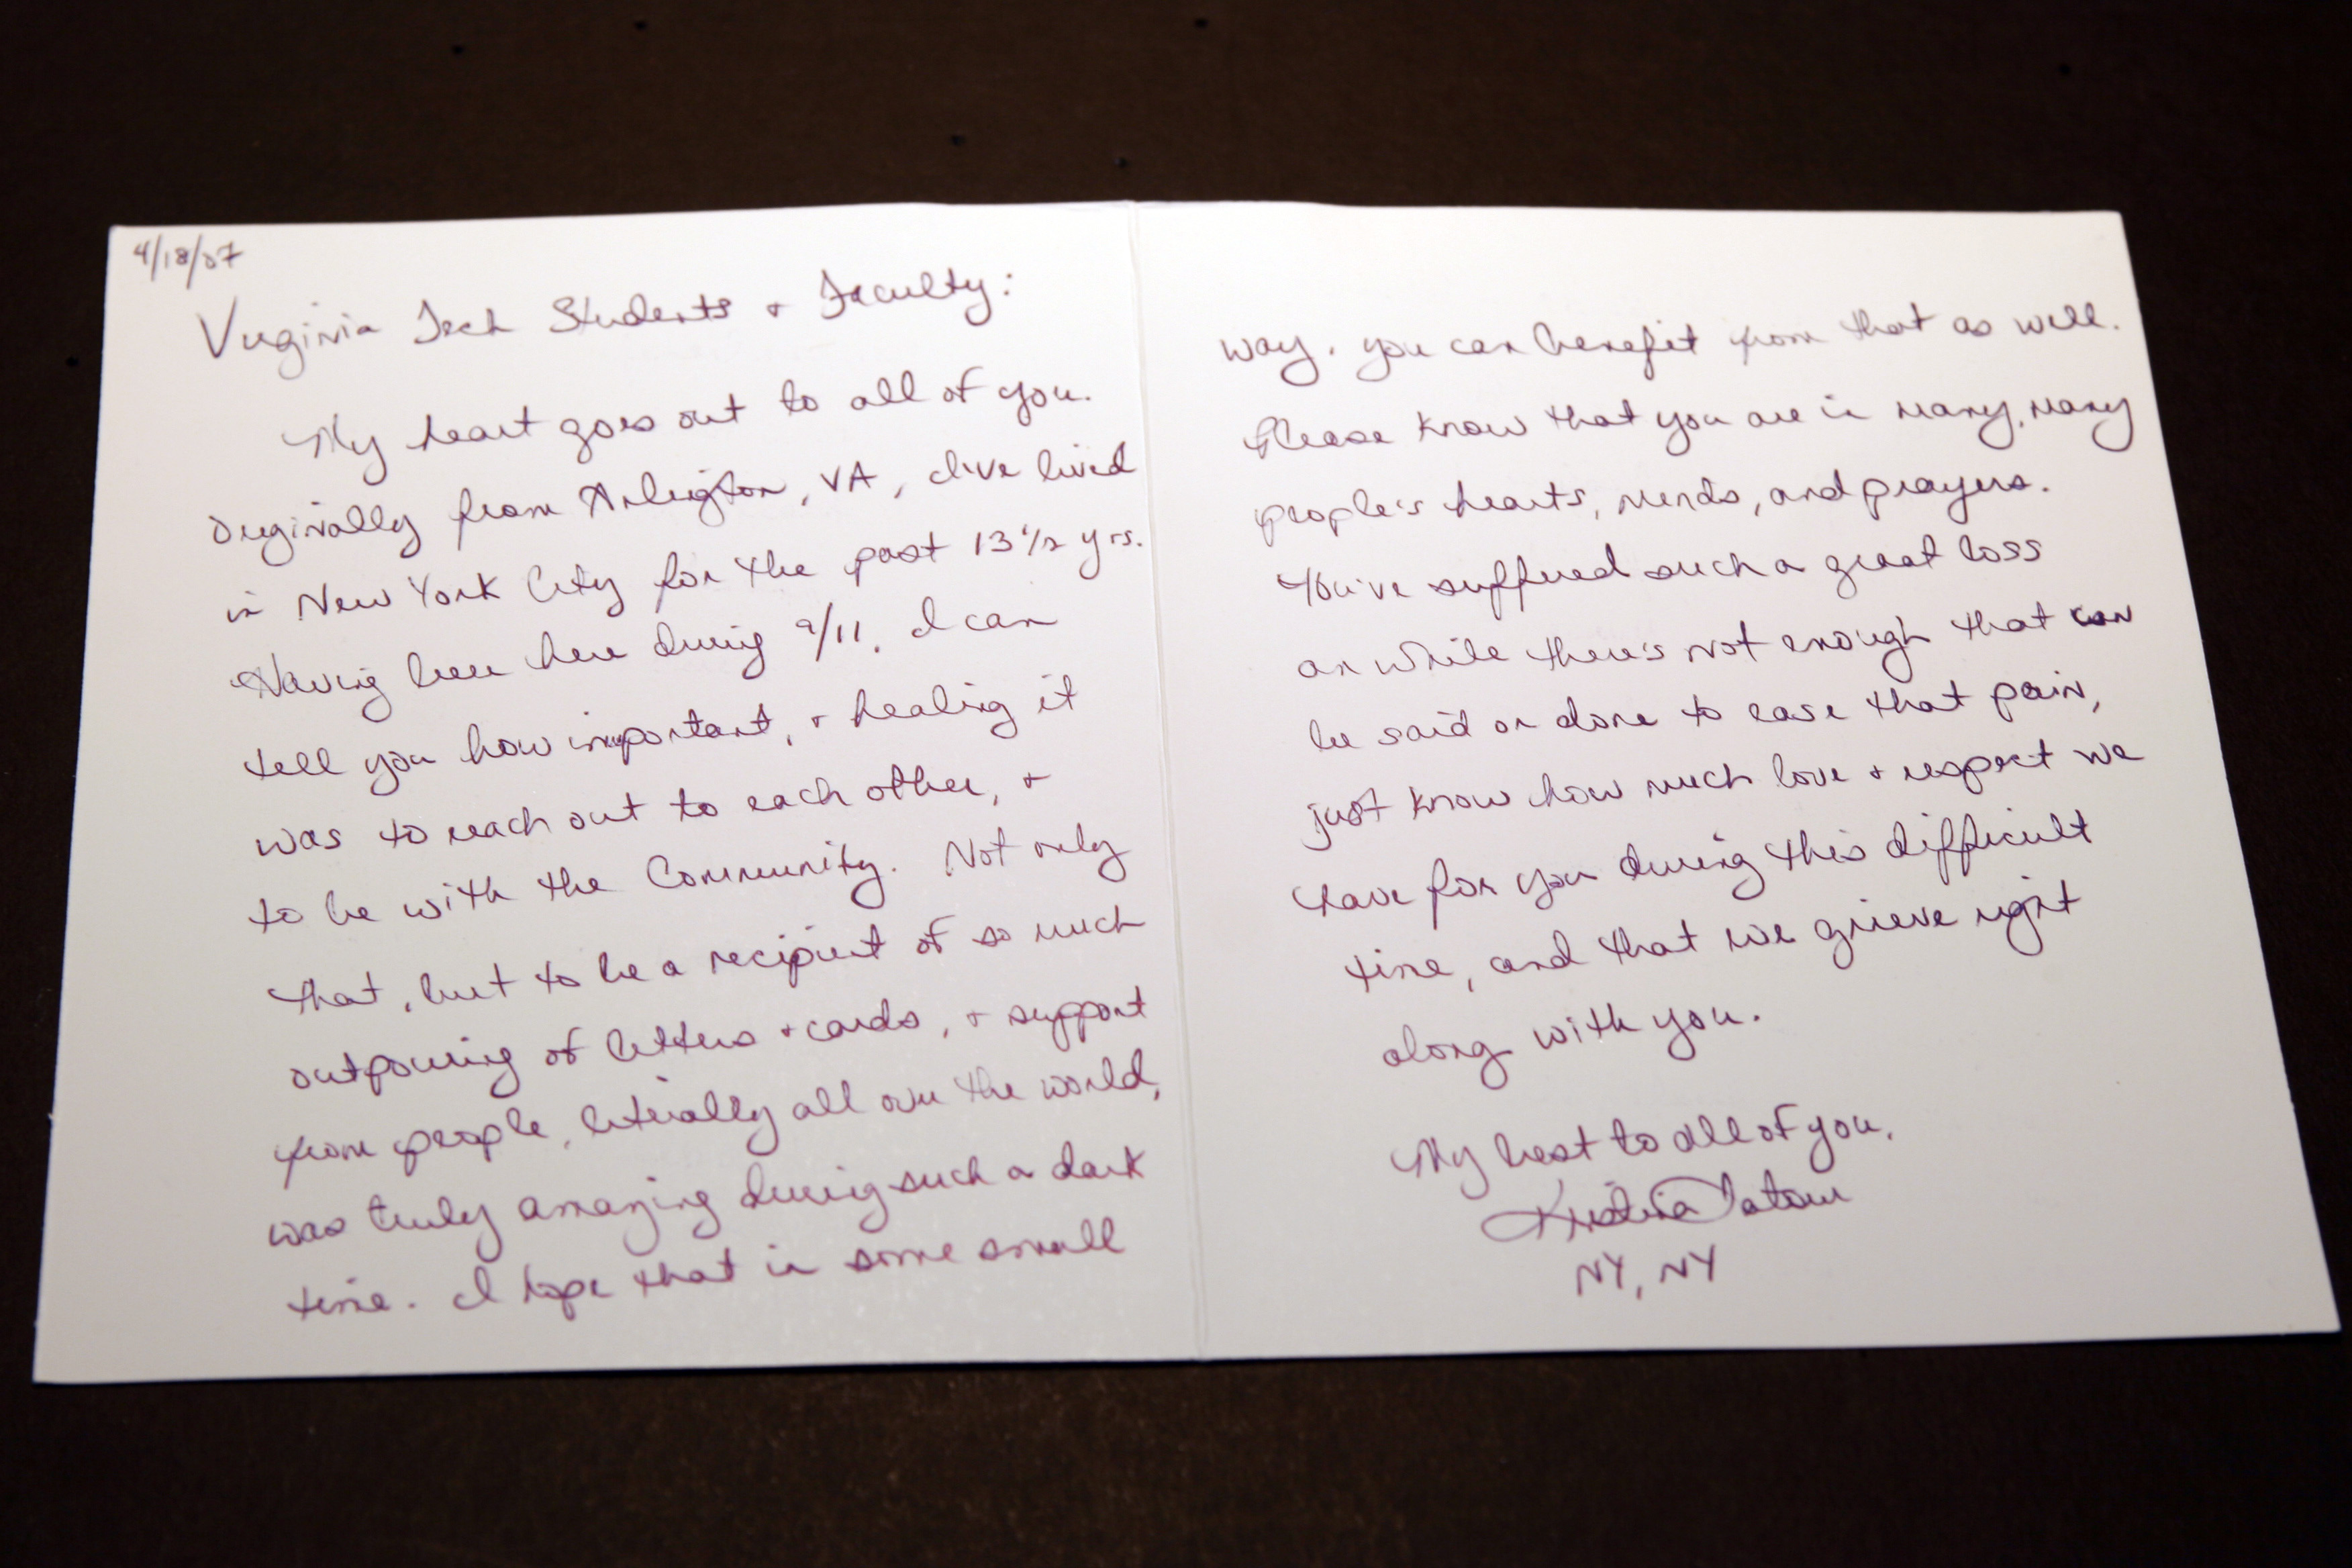 4/18/07
Virginia Tech Students + Faculty:
My heart goes out to all of you.
Originally from Arlington, VA, I've lived
in New York City for the past 13 1/2 yrs.
Having been here during 9/11, I can
tell you how important, + healing it
was to reach out to each other, +
to be with the Community. Not only
that, but to be a recipient of so much
outpouring of letters + cards, + support
from people, literally all over the world,
was truly amazing during such a dark
time. I hope that in some small
way, you can benefit from that as well.
Please know that you are in many, many
people's hearts, minds, and prayers.
You've suffered such a great loss
an while there's not enough that can
be said or done to ease that pain,
just know how much love + respect we
have for you during this difficult
time, and that we grieve right
along with you.
My best to all of you,
Kristina Tatum
NY, NY